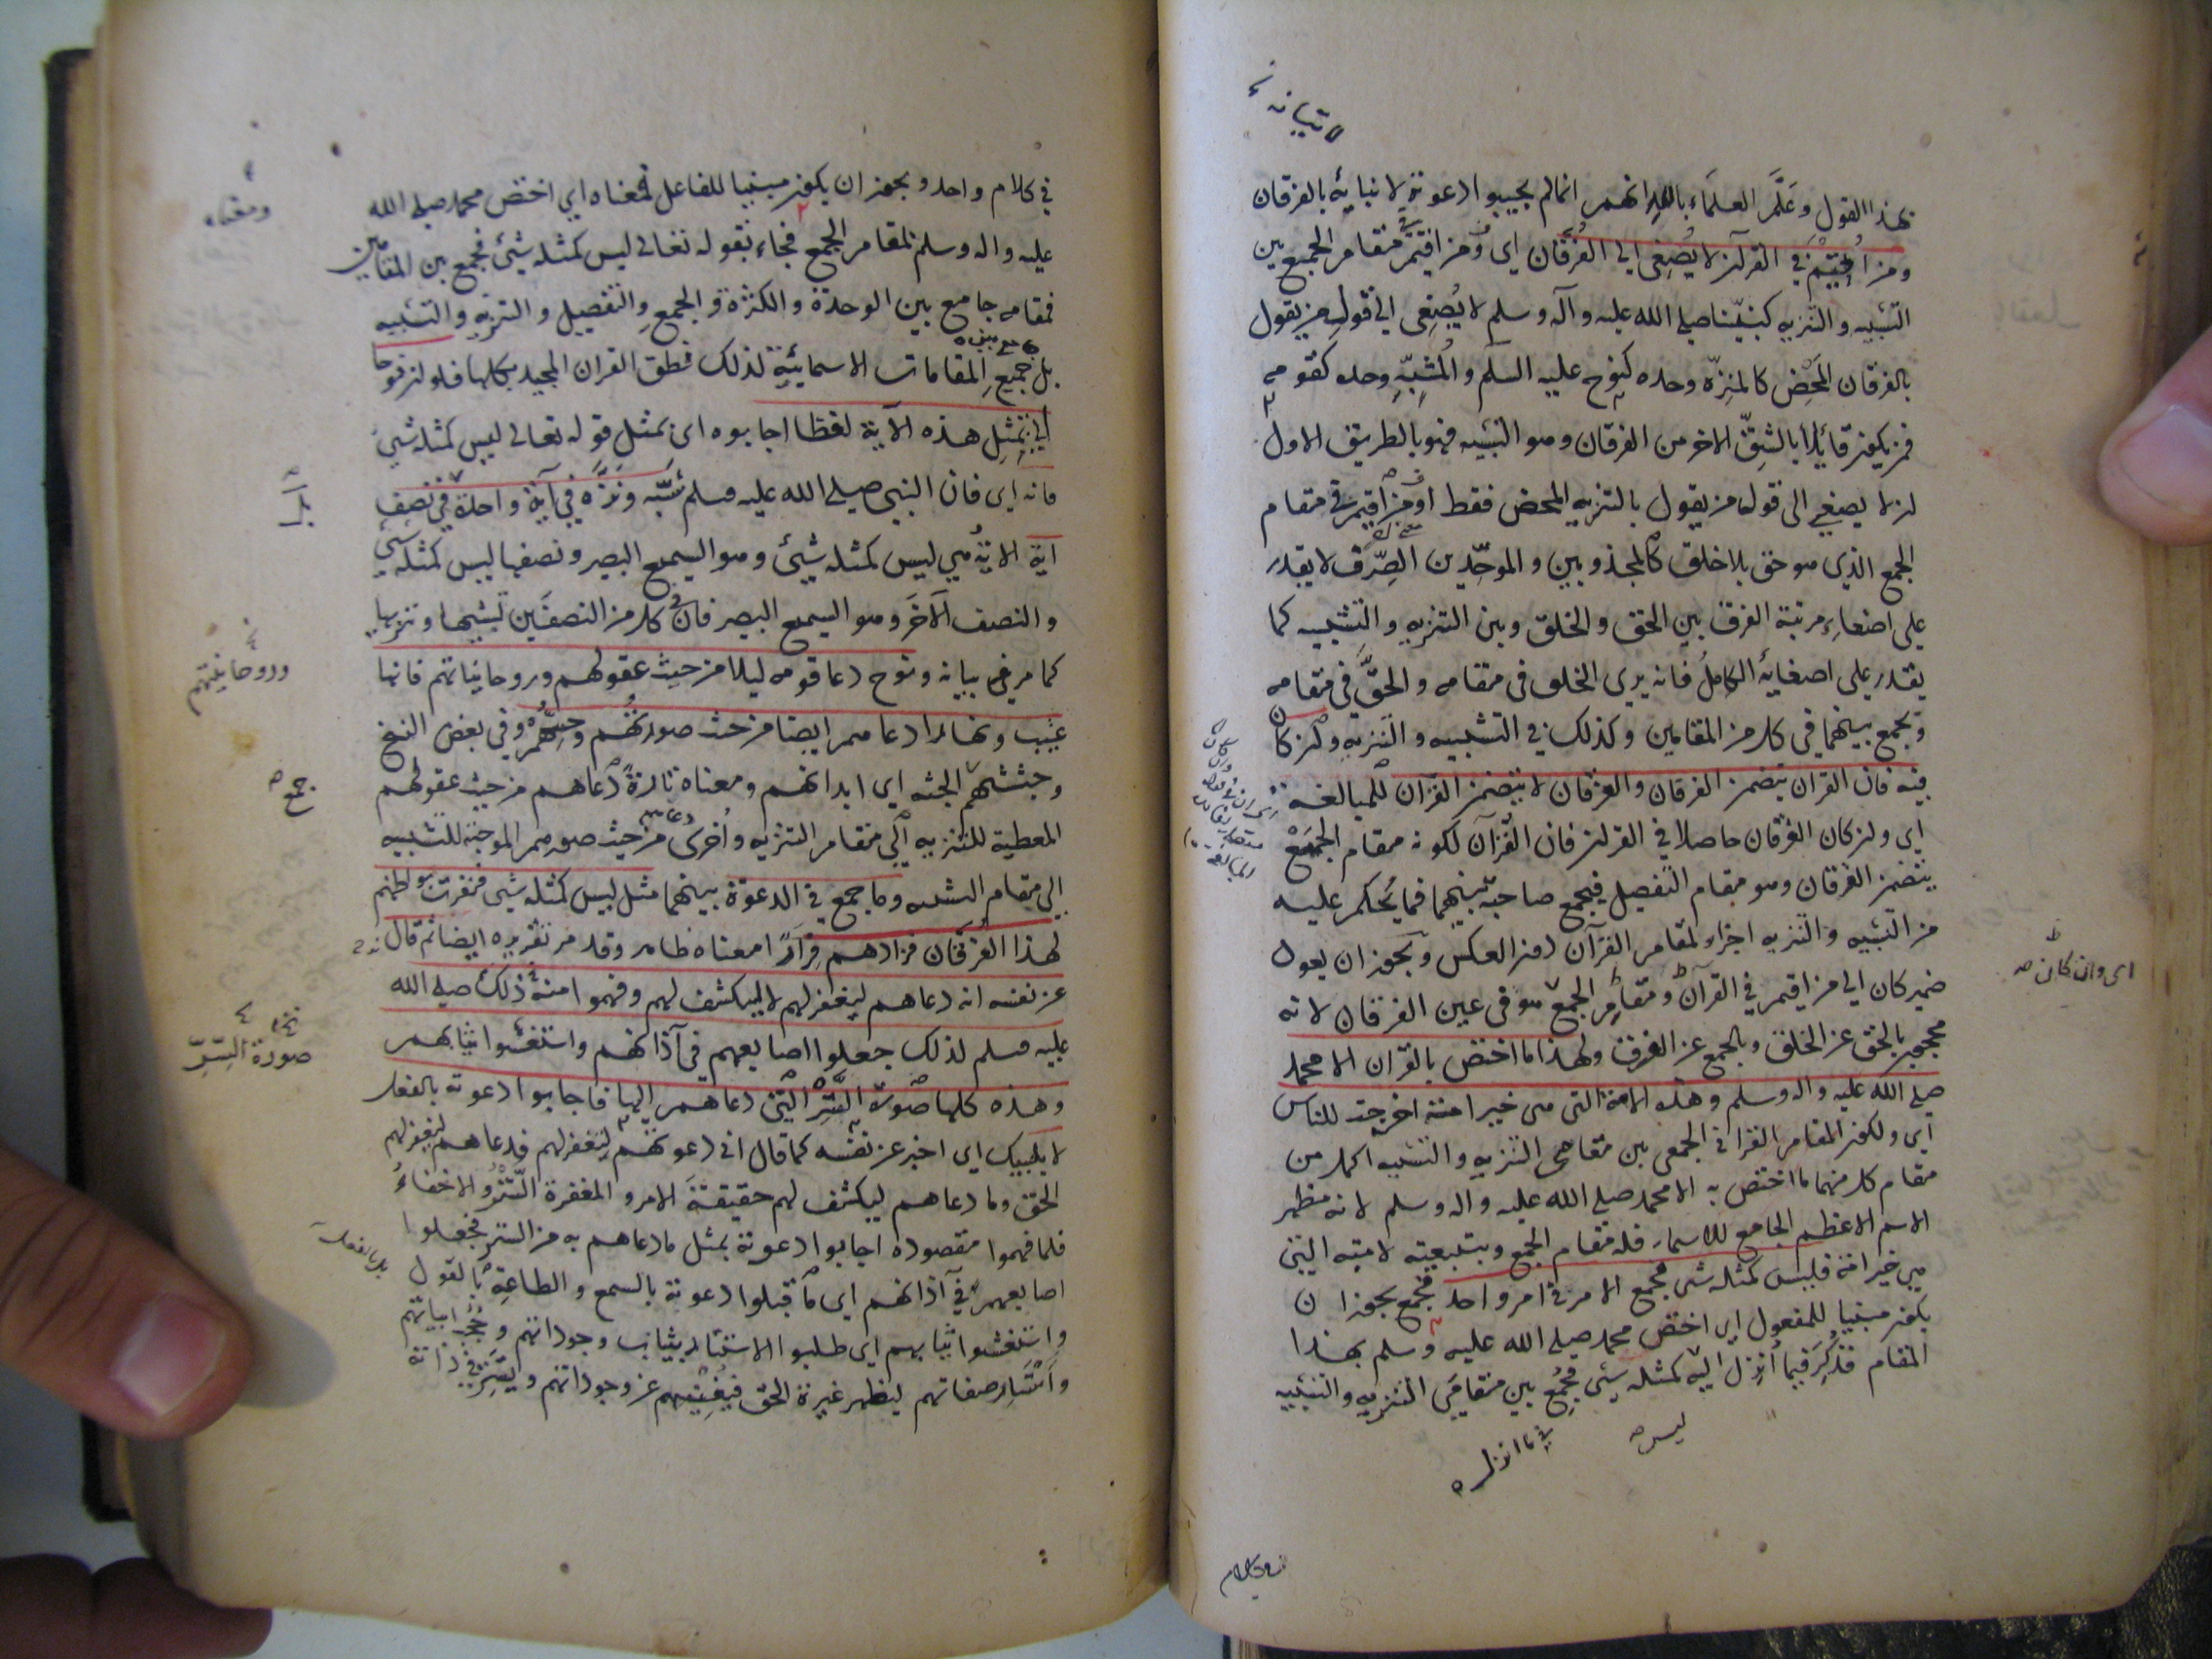 بهذا القول وعلم العلماء بالله انهم انما لم يجيبوا دعوته لاتيانه بالفرقان
ومن اقيم في القرآن لا يصغى الى الفرقان اى ومن اقيم في مقام الجمع بين
التشبيه والتنزيه كنبيّنا صلى الله عليه وآله وسلم لا يُصغى الى قول من يقول
بالفرقان المحض كالمنزّه وحده كنوح عليه السلم والمُشبّه وحده كقومه
فمن يكون قائلا بالشقّ الاخر من الفرقان وهو التشبيه فهو بالطريق الاول
لان لا يصغى الى قول من يقول بالتنزيه المحض فقط او من اقيم في مقام
الجمع الذى هو حق بلا خلق كالمجذوبين والموحّدين الصّرف لا يقدر
على اصغاء مرتبة الفرق بين الحق والخلق وبين التنزيه والتشبيه كما
يقدر على اصغائه الكامل فانه يرى الخلق فى مقامه والحقّ في مقامه
ويجمع بينهما فى كل من المقامين وكذلك في التشبيه والتنزيه وان كان
فيه فان القران يتضمن الفرقان والفرقان لا يتضمن القرآن للمبالغة
اى وان كان الفرقان حاصلا في القرآن فان القرآن لكونه مقام الجمع
يتضمن الفرقان وهو مقام التفصيل فيجمع صاحبه بينهما فيما يحكم عليه
من التشبيه والتنزيه اجزاء لمقام القرآن دون العكس ويجوز ان يعود
ضمير كان الى من اقيم في القرآن ومقام الجمع هو فى عين الفرقان لانه
محجوب بالحق عن الخلق وبالجمع عن الفرق ولهذا ما اختص بالقران الا محمد
صلى الله عليه واله وسلم وهذه الامة التى هى خير امة اخرجت للناس
اى ولكون المقام القرآنى الجمعى بين مقامى التنزيه والتشبيه اكمل من
مقام كل منهما ما اختص به الا محمد صلى الله عليه واله وسلم لانه مظهر
الاسم الاعظم الجامع للاسماء فله مقام الجمع وبتبعيته لامته التى
هي خير امة فليس كمثله شى فجمع الامر في امر واحد فجمع يجوز ان
يكون مبنيا للمفعول اى اختص محمد صلى الله عليه وسلم بهذا
المقام فذُكِرَ فيما اُنزِل اليه كمثله شئ فجُمِعَ بين مقامَى التنزيه والتشبيه
ليس
فيما انزل
اى وان كان
في كلام
في كلام واحد ويجوز ان يكون مبنيا للفاعل فمعناه اى اختص محمد صلى الله
عليه واله وسلم بمقام الجمع فجاء بقوله تعالى ليس كمثله شئ فجمع بين المقامين
فمقامه جامع بين الوحدة والكثرة والجمع والتفصيل والتنزيه والتشبيه
بل جميع المقامات الاسمائية لذلك نطق القران المجيد بكلها فلو ان نوحا
أتى بمثل هذه الآية لفظا اجابوه اى بمثل قوله تعالى ليس كمثله شئ
فانه اى فان النبى صلى الله عليه وسلم شبّه ونزّه في آية واحدة فى نصف
اية الاية هي ليس كمثله شئ وهو السميع البصير ونصفها ليس كمثله شئ
والنصف الآخر وهو السميع البصير فان فى كل من النصفين تشبيها وتنزيها
كما مر في بيانه ونوح دعا قومه ليلا من حيث عقولهم وروحانياتهم فانها
غيب ونهارا دعاهم ايضا من حيث صورهم وحسّهم وفى بعض النسخ
وجثثهم الجثه اى ابدانهم ومعناه تارة دعاهم من حيث عقولهم
المعطية للتنزيه الى مقام التنزيه واُخرى من حيث صورهم الموجبة للتشبيه
الى مقام التشبيه وما جمع في الدعوة بينهما مثل ليس كمثله شى فنفرت بواطنهم
لهذا الفرقان فزادهم فِرَارًا معناه ظاهر وقد مر تقريره ايضا ثم قال
عن نفسه انه دعاهم ليغفر لهم لا ليكشف لهم وفهموا منه ذلك صلى الله
عليه وسلم لذلك جعلوا اصابعهم فى آذانهم واستغشوا ثيابهم
وهذه كلها صورة السَّتْر التى دعاهم اليها فاجابوا دعوته بالفعل
لا بلبيك اى اخبر عن نفسه كما قال انى دعوتهم لتغفر لهم فدعاهم ليغفر لهم
الحق وما دعاهم ليكشف لهم حقيقة الامر والمغفرة السَّتْرُ والاخفاءُ
فلما فهموا مقصوده اجابوا دعوته بمثل ما دعاهم به من الستر فجعلوا
اصابعهم في آذانهم اى ما قبلوا دعوته بالسمع والطاعة بالقول
واستغشوا ثيابهم اى طلبوا الاستتار بثياب وجوداتهم وحجب انياتهم
واستتار صفاتهم ليظهر غيرة الحق فيفنيهم عن وجوداتهم ويستر في ذاته
ومعناه
وروحانيتهم
جمع
صورة السّتر
بل بالفعل